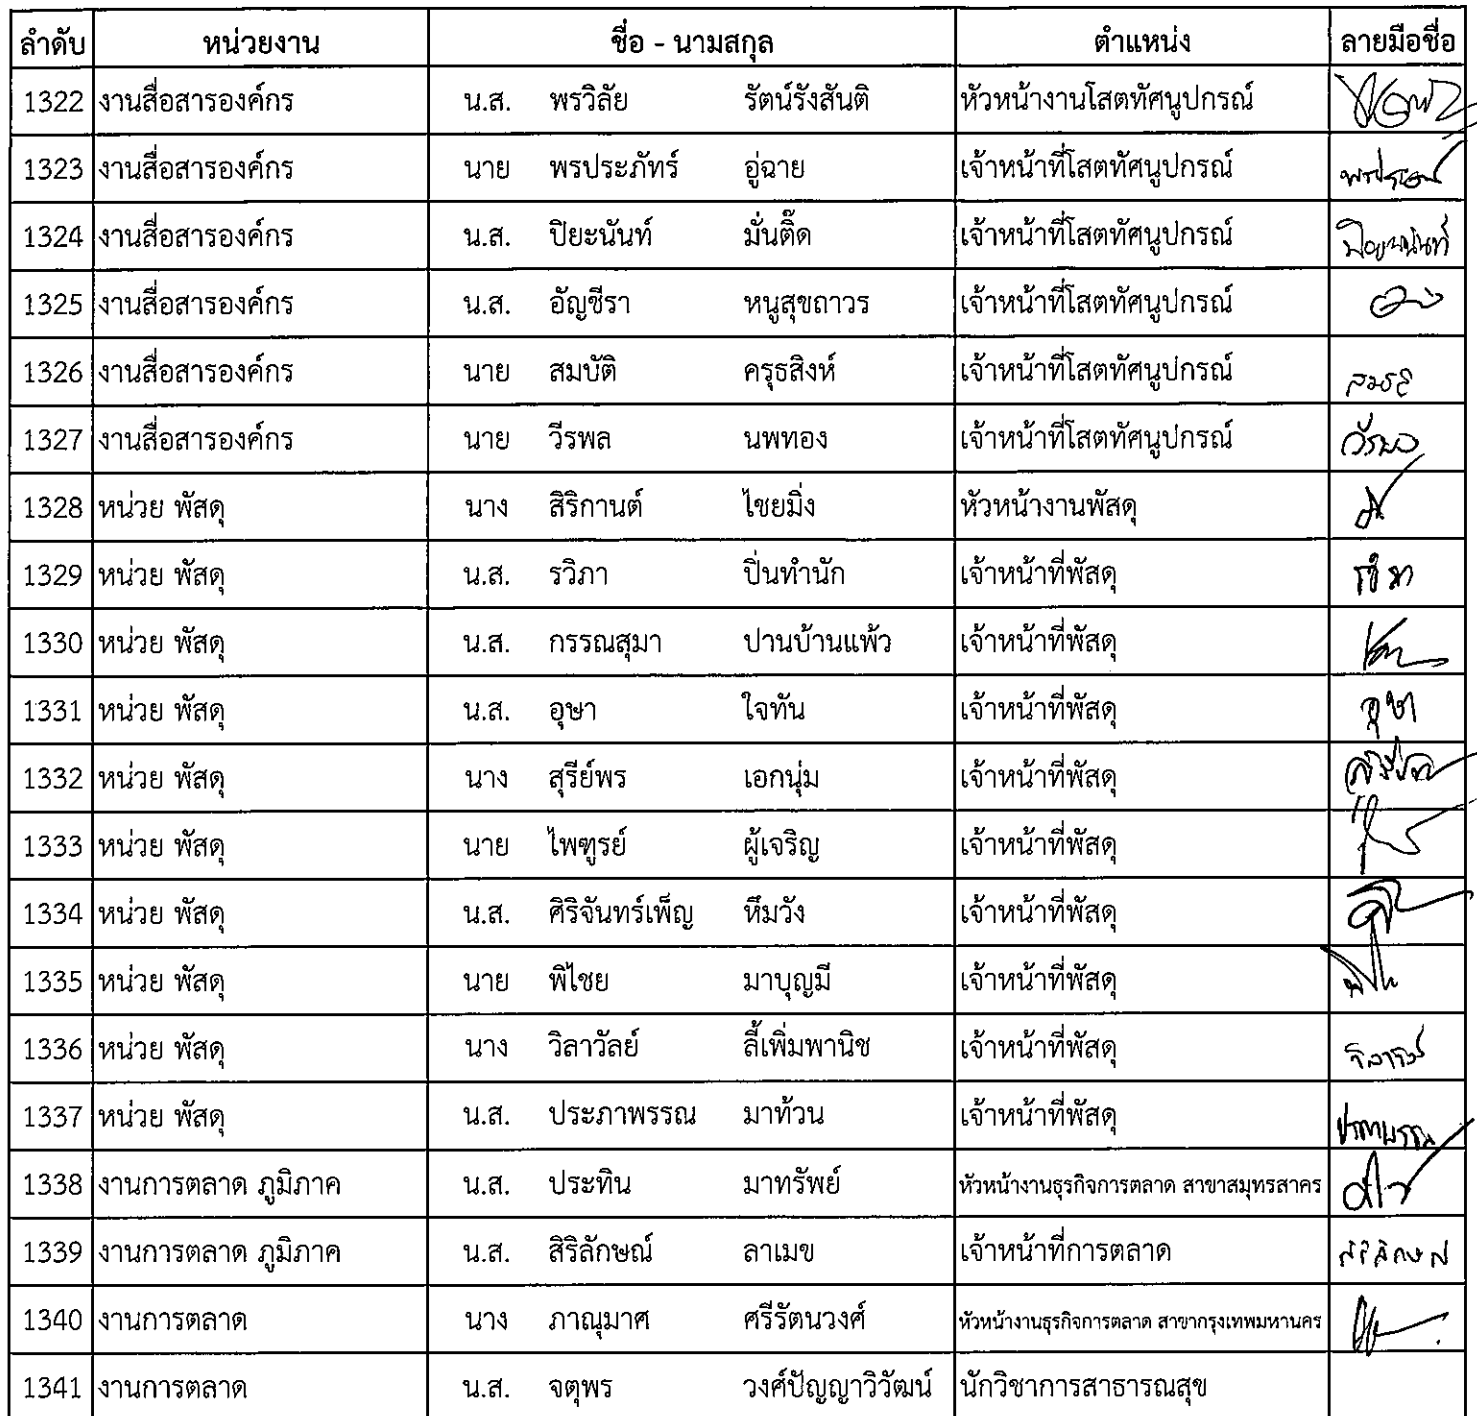 ลำดับ หน่วยงาน ชื่อ - นามสกุล ตำแหน่ง ลายมือชื่อ
1322 งานสื่อสารองค์กร น.ส. พรวิลัย รัตน์รังสันติ หัวหน้างานโสตทัศนูปกรณ์
1323 งานสื่อสารองค์กร นาย พรประภัทร์ อู่ฉาย เจ้าหน้าที่โสตทัศนูปกรณ์
1324 งานสื่อสารองค์กร น.ส. ปิยะนันท์ มั่นติ๊ด เจ้าหน้าที่โสตทัศนูปกรณ์ ปิยะนันท์
1325 งานสื่อสารองค์กร น.ส. อัญชีรา หนูสุขถาวร เจ้าหน้าที่โสตทัศนูปกรณ์
1326 งานสื่อสารองค์กร นาย สมบัติ ครุธสิงห์ เจ้าหน้าที่โสตทัศนูปกรณ์
1327 งานสื่อสารองค์กร นาย วีรพล นพทอง เจ้าหน้าที่โสตทัศนูปกรณ์ วีรพล
1328 หน่วย พัสดุ นาง สิริกานต์ ไชยมิ่ง หัวหน้างานพัสดุ
1329 หน่วย พัสดุ น.ส. รวิภา ปิ่นทำนัก เจ้าหน้าที่พัสดุ
1330 หน่วย พัสดุ น.ส. กรรณสุมา ปานบ้านแพ้ว เจ้าหน้าที่พัสดุ
1331 หน่วย พัสดุ น.ส. อุษา ใจทัน เจ้าหน้าที่พัสดุ อุษา
1332 หน่วย พัสดุ นาง สุรีย์พร เอกนุ่ม เจ้าหน้าที่พัสดุ
1333 หน่วย พัสดุ นาย ไพฑูรย์ ผู้เจริญ เจ้าหน้าที่พัสดุ
1334 หน่วย พัสดุ น.ส. ศิริจันทร์เพ็ญ หึมวัง เจ้าหน้าที่พัสดุ
1335 หน่วย พัสดุ นาย พิไชย มาบุญมี เจ้าหน้าที่พัสดุ
1336 หน่วย พัสดุ นาง วิลาวัลย์ ลี้เพิ่มพานิช เจ้าหน้าที่พัสดุ
1337 หน่วย พัสดุ น.ส. ประภาพรรณ มาท้วน เจ้าหน้าที่พัสดุ
1338 งานการตลาด ภูมิภาค น.ส. ประทิน มาทรัพย์ หัวหน้างานธุรกิจการตลาด สาขาสมุทรสาคร
1339 งานการตลาด ภูมิภาค น.ส. สิริลักษณ์ ลาเมฆ เจ้าหน้าที่การตลาด
1340 งานการตลาด นาง ภาณุมาศ ศรีรัตนวงศ์ หัวหน้างานธุรกิจการตลาด สาขากรุงเทพมหานคร
1341 งานการตลาด น.ส. จตุพร วงศ์ปัญญาวิวัฒน์ นักวิชาการสาธารณสุข